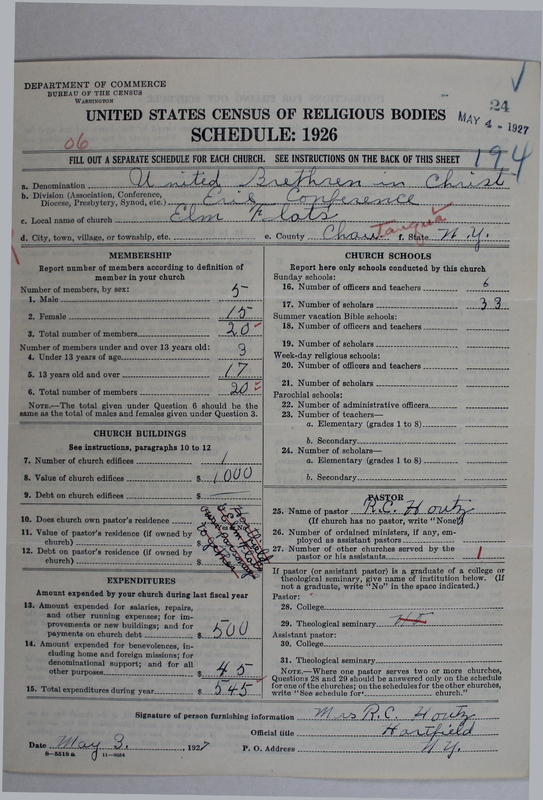 DEPARTMENT OF COMMERCE
BUREAU OF THE CENSUS
WASHINGTON
24
MAY 4 - 1927
UNITED STATES CENSUS OF RELIGIOUS BODIES
SCHEDULE: 1926
06
194
FILL OUT A SEPARATE SCHEDULE FOR EACH CHURCH. SEE INSTRUCTIONS ON THE BACK OF THIS SHEET
a. Denomination United Brethren in Christ
b. Division (Association, Conference, Diocese, Presbytery, Synod, etc.) Erie Conference
c. Local name of church Elm Flats
d. City, town, village, or township, etc. e. County Chautauqua f. State N.Y.
MEMBERSHIP
Report number of members according to definition of
member in your church
Number of members, by sex:
1. Male 5
2. Female 15
3. Total number of members 20
Number of members under and over 13 years old:
4. Under 13 years of age 3
5. 13 years old and over 17
6. Total number of members 20
NOTE.—The total given under Question 6 should be the
same as the total of males and females given under Question 3.
CHURCH BUILDINGS
See instructions, paragraphs 10 to 12
7. Number of church edifices 1
8. Value of church edifices $ 1000
9. Debt on church edifices $
10. Does church own pastor's residence
11. Value of pastor's residence (if owned by
church) $
12. Debt on pastor's residence (if owned by
church) $
Hartfield
& Elm Flats
own parsonage
together
EXPENDITURES
Amount expended by your church during last fiscal year
13. Amount expended for salaries, repairs,
and other running expenses; for im-
provements or new buildings; and for
payments on church debt $ 500
14. Amount expended for benevolences, in-
cluding home and foreign missions; for
denominational support; and for all
other purposes $ 45
15. Total expenditures during year $ 545
CHURCH SCHOOLS
Report here only schools conducted by this church
Sunday schools:
16. Number of officers and teachers 6
17. Number of scholars 33
Summer vacation Bible schools:
18. Number of officers and teachers
19. Number of scholars
Week-day religious schools:
20. Number of officers and teachers
21. Number of scholars
Parochial schools:
22. Number of administrative officers
23. Number of teachers—
a. Elementary (grades 1 to 8)
b. Secondary
24. Number of scholars—
a. Elementary (grades 1 to 8)
b. Secondary
PASTOR
25. Name of pastor R.C. Houtz
(If church has no pastor, write "None")
26. Number of ordained ministers, if any, em-
ployed as assistant pastors
27. Number of other churches served by the
pastor or his assistants 1
If pastor (or assistant pastor) is a graduate of a college or
theological seminary, give name of institution below. (If
not a graduate, write "No" in the space indicated.)
Pastor:
28. College
29. Theological seminary
Assistant pastor:
30. College
31. Theological seminary
NOTE.—Where one pastor serves two or more churches,
Questions 28 and 29 should be answered only on the schedule
for one of the churches; on the schedules for the other churches,
write "See schedule for church."
Signature of person furnishing information Mrs R.C. Houtz
Official title Hartfield
Date May 3, 1927 P. O. Address N.Y.
8-5518 a